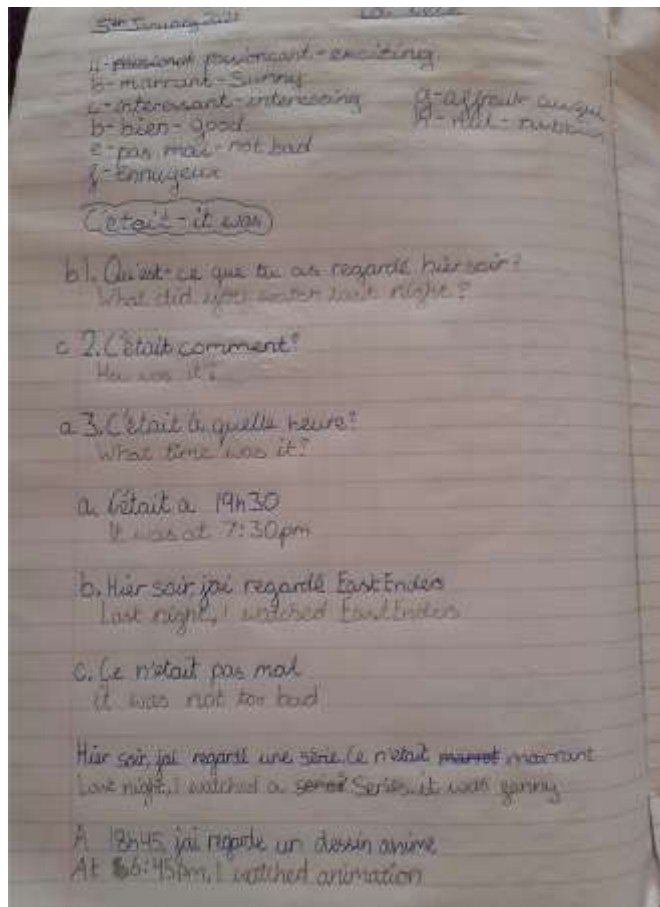 5th January 2021
a- passionant - exciting
b- marrant - Sunny
c- interessant - interessing
b- bien - good
e- pas mal - not bad
f- Ennuyeux
g- affreux
h- nul - rubbish
C'était - it was
b 1. Qu'est-ce que tu as regardé hier soir?
What did you watch last night?
c 2. C'était comment?
How was it?
a 3. C'était à quelle heure?
What time was it?
a. C'était a 19h30
It was at 7:30pm
b. Hier soir, jai regardé EastEnders
Last night, I watched EastEnders
c. Ce n'était pas mal
it was not too bad
Hier soir, jai regardé une série. Ce n'était marrant
Last night, I watched a Series. it was gunny
A 18h45, jai regarde un dessin animé
At 6:45pm, I watched animation